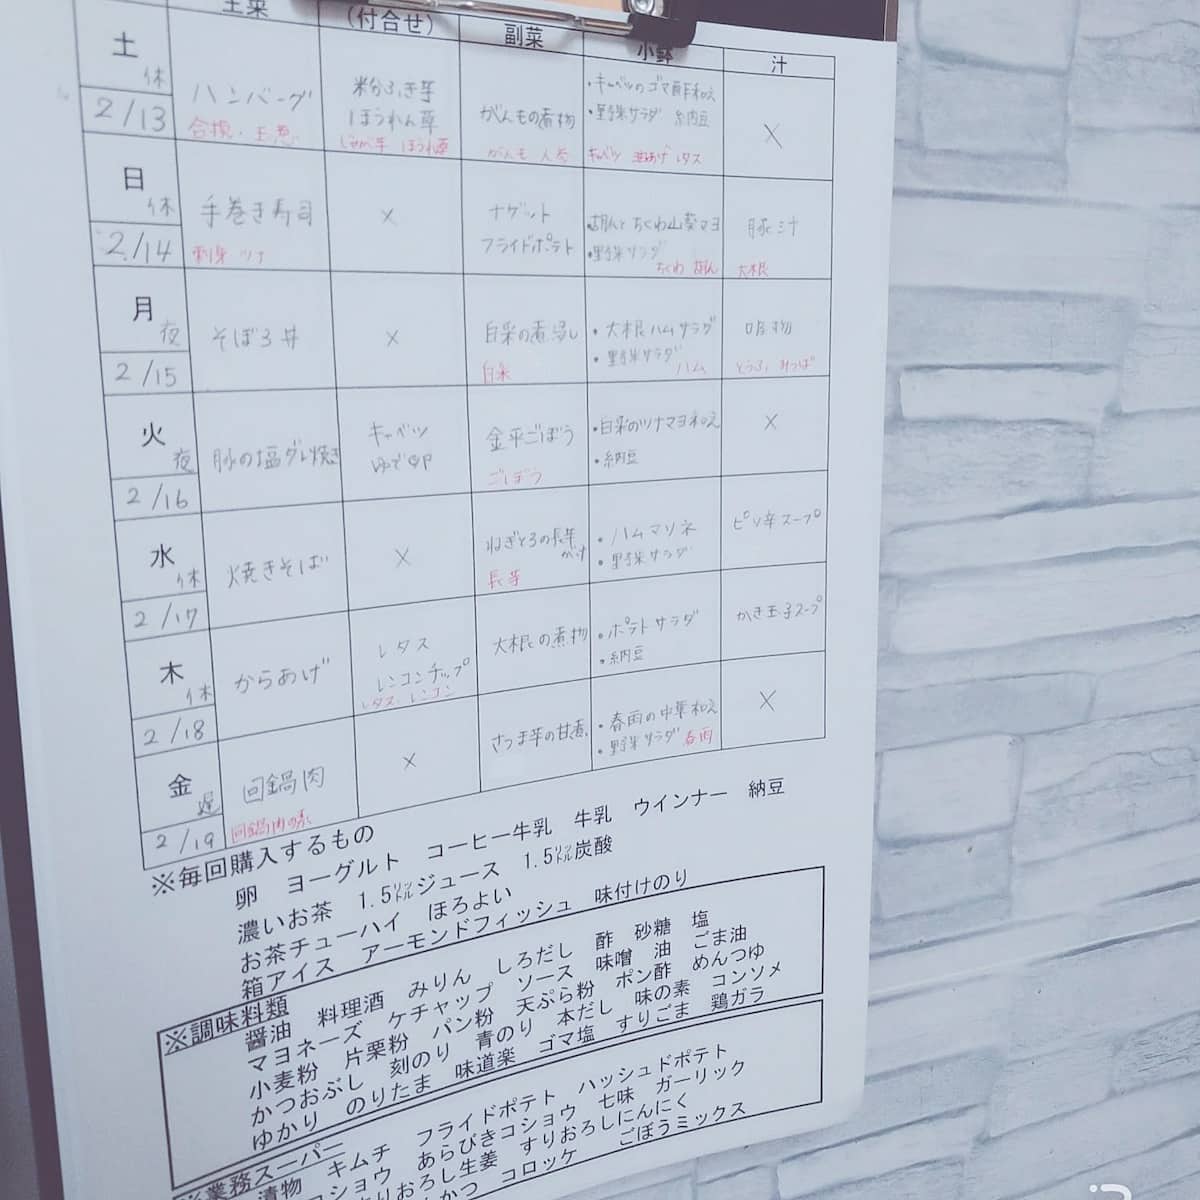 主菜 (付合せ) 副菜 小鉢 汁
土 休
2/13
ハンバーグ
合挽、玉葱
粉ふき芋
ほうれん草
じゃが芋 ほうれん草
がんもの煮物
がんも 人参
・キャベツのゴマ酢和え
・野菜サラダ 納豆
キャベツ 油あげ レタス
×
日 休
2/14
手巻き寿司
刺身 ツナ
×
ナゲット
フライドポテト
ちくわ山葵マヨ
・野菜サラダ
ちくわ
豚汁
大根
月 夜
2/15
そぼろ丼
×
白菜の煮浸し
白菜
・大根ハムサラダ
・野菜サラダ
ハム
吸物
とうふ、みつば
火 夜
2/16
豚の塩ダレ焼き
キャベツ
ゆで卵
金平ごぼう
ごぼう
・白菜のツナマヨ和え
・納豆
×
水 休
2/17
焼きそば
×
ねぎとろの長芋
がけ
長芋
・ハムマリネ
・野菜サラダ
ピリ辛スープ
木 休
2/18
からあげ
レタス
レンコンチップ
レタス、レンコン
大根の煮物
・ポテトサラダ
・納豆
かき玉子スープ
金 遅
2/19
回鍋肉
回鍋肉の素
×
さつま芋の甘煮
・春雨の中華和え
・野菜サラダ 春雨
×
※毎回購入するもの
卵 ヨーグルト コーヒー牛乳 牛乳 ウインナー 納豆
濃いお茶 1.5㍑ジュース 1.5㍑炭酸
お茶チューハイ ほろよい
箱アイス アーモンドフィッシュ 味付けのり
※調味料類
醤油 料理酒 みりん しろだし 酢 砂糖 塩
マヨネーズ ケチャップ ソース 味噌 油 ごま油
小麦粉 片栗粉 パン粉 天ぷら粉 ポン酢 めんつゆ
かつおぶし 刻のり 青のり 本だし 味の素 コンソメ
ゆかり のりたま 味道楽 ゴマ塩 すりごま 鶏ガラ
※業務スーパー
漬物 キムチ フライドポテト ハッシュドポテト
コショウ あらびきコショウ 七味 ガーリック
すりおろし生姜 すりおろしにんにく
かつ コロッケ ごぼうミックス